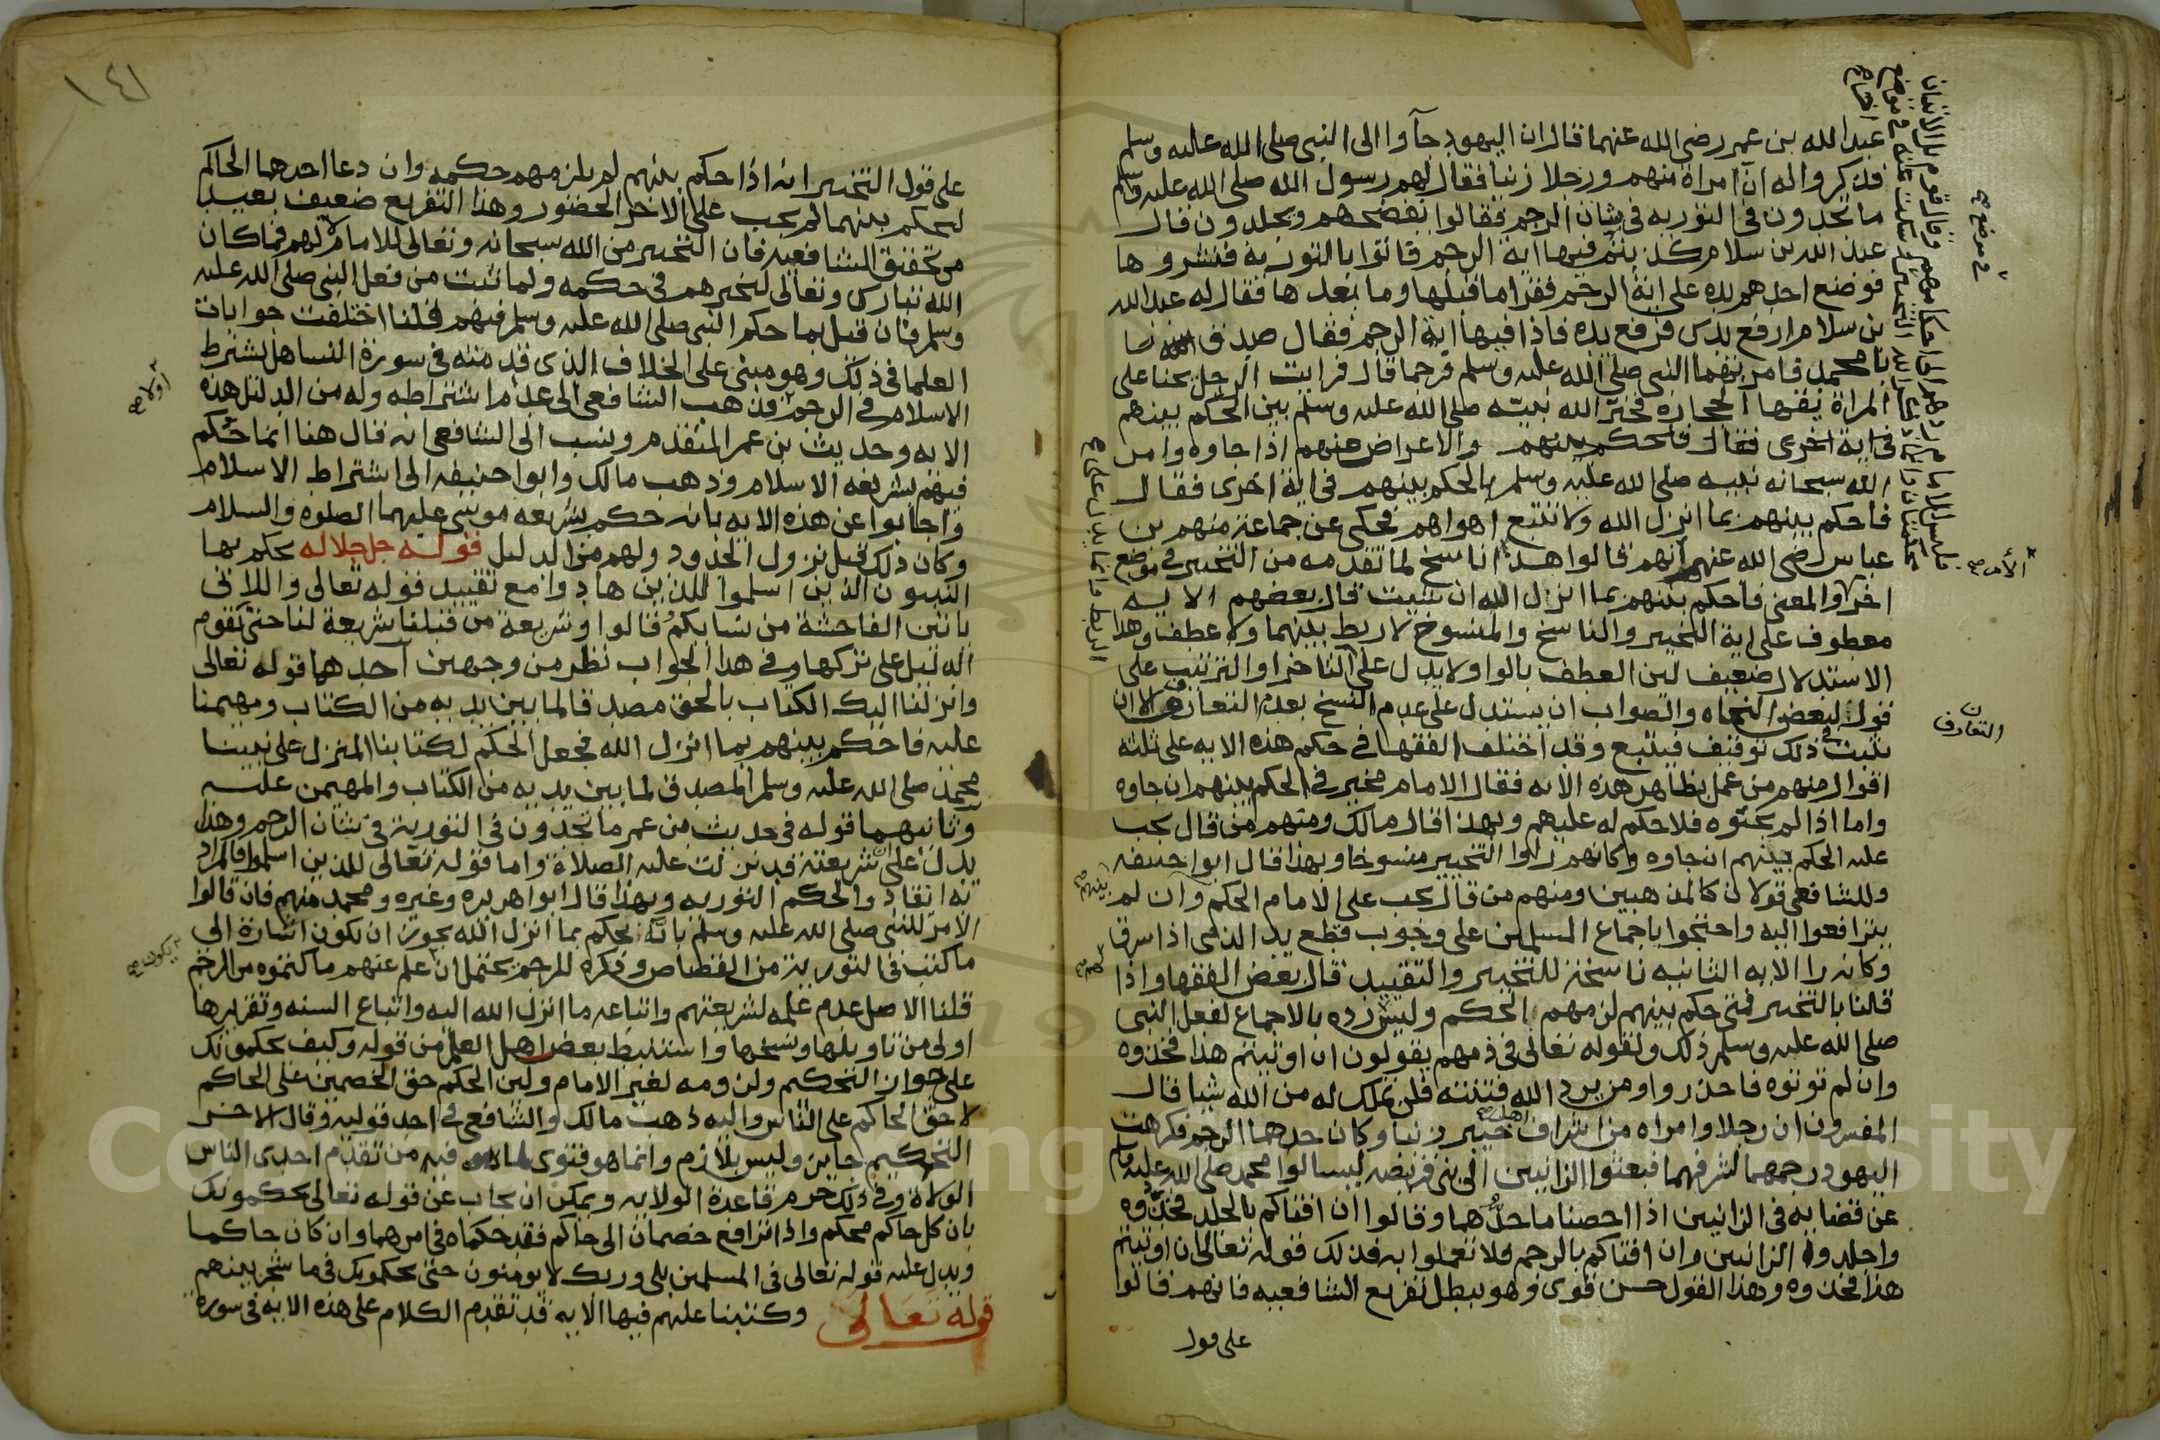 عبدالله بن عمر رضى الله عنهما قال ان اليهود جآوا الى النبى صلى الله عليه وسلم
فذكروا له انّ امراة منهم ورجلا زنيا فقال لهم رسول الله صلى الله عليه وسلم
ما تجدون فى التورىه فى شان الرجم فقالوا نفضحهم ويجلدون قال
عبد الله بن سلام كذبتم فيها اية الرجم فاتوا بالتورية فنشروها
فوضع احدهم يده على اية الرجم فقرا ما قبلها وما بعدها فقال له عبدالله
بن سلام ارفع يدك فرفع يده فاذا فيها اية الرجم فقال صدق
يا محمد فامر بهما النبى صلى الله عليه وسلم فرجما قال فرايت الرجل يحنا على
المراة يقيها الحجارة فخيّر الله نبيّه صلى الله عليه وسلم بين الحكم بينهم
والاعراض عنهم اذا جاوه وامر
الله سبحانه نبيه صلى الله عليه وسلم بالحكم بينهم فى اية اخرى فقال
فاحكم بينهم بما انزل الله ولا تتبع اهواهم فحكى عن جماعة منهم بن
عباس رضى الله عنهم انهم قالوا هذا ناسخ لما تقدمه من التخيير فى موضع
اخر والمعنى فاحكم بينهم بما انزل الله ان شيت قال بعضهم الايه
معطوف على اية التخيير والناسخ والمنسوخ لا ربط بينهما ولا عطف وهذا
الاستدلال ضعيف لىن العطف بالواو لا يدل على التاخر او الترتيب على
قول لبعض النحاه والصواب ان يستدل على عدم النسخ بعدم التعارض الا ان
يثبت فى ذلك توقيف فيتبع وقد اختلف الفقها فى حكم هذه الايه على ثلثه
اقوال منهم من عمل بظاهر هذه الايه فقال الامام مخير فى الحكم بينهم ان جاوه
واما اذا لم يجئوه فلا حكم له عليهم وبهذا قال مالك ومنهم من قال يجب
عليه الحكم بينهم ان جاوه وكانهم راوا التخيير منسوخا وبهذا قال ابوا حنيفه
وللشافعى قولان كالمذهبين ومنهم من قال يجب على الامام الحكم وان لم
يترافعوا اليه واحتجوا باجماع المسلمين على وجوب قطع يد الذمى اذا سرق
وكانه راا الايه الثانيه ناسخة للتخيير والتقييد قال بعض الفقها واذا
قلنا بالتخيير فمتى حكم بينهم لزمهم الحكم وليس رده بالاجماع لفعل النبى
صلى الله عليه وسلم ذلك ولقوله تعالى فى ذمهم يقولون ان اوتيتم هذا فخذوه
وان لم توتوه فاحذروا ومن يرد الله فتنته فلن تملك له من الله شيا قال
المفسرون ان رجلا وامراه من اشراف اهل خيبر زنيا وكان حدهما الرجم فكرهت
اليهود رجمهما لشرفهما فبعثوا الزانيين الى بنى قريضه ليسالوا محمد صلى الله عليه وسلم
عن قضايه فى الزانيين اذا احصنا ما حدّهما وقالوا ان افتاكم بالجلد فخذوه
واجلدوا الزانيين وان افتاكم بالرجم فلا تعملوا به فذلك قوله تعالى ان اوتيتم
هذا فخذوه وهذا القول حسن قوى وهو يبطل تفريع الشافعيه فانهم قالوا
على قول
فى موضع
الأمر
التعارف
بينهم
١٤١
على قول التخيير انه اذا حكم بينهم لم يلزمهم حكمه وان دعا احدهما الحاكم
ليحكم بينهما لم يجب على الاخر الحضور وهذا التفريع ضعيف بعيد
من تحقيق الشافعيه فان التخيير من الله سبحانه وتعالى للامام لا لهم فما كان
الله تبارك وتعالى ليخيرهم فى حكمه ولما ثبت من فعل النبى صلى الله عليه
وسلم فان قيل بما حكم النبى صلى الله عليه وسلم فيهم قلنا اختلفت جوابات
العلما فى ذلك وهو مبنى على الخلاف الذى قدمته فى سورة النسا هل يشترط
الاسلام فى الرجم فذهب الشافعى الى عدم اشتراطه وله من الدليل هذه
الايه وحديث بن عمر المتقدم ونسب الى الشافعى انه قال هنا انما حكم
فيهم بشريعة الاسلام وذهب مالك وابوا حنيفه الى اشتراط الاسلام
واجابوا عن هذه الايه بانه حكم بشريعه موسى عليهما الصلوه والسلام
وكان ذلك قبل نزول الحدود ولهم من الدليل قوله جل جلاله يحكم بها
النبيون الذين اسلموا للذين هادوا مع تقييد قوله تعالى واللاتى
ياتين الفاحشة من نسايكم قالوا وشريعة من قبلنا شريعة لنا حتى تقوم
الدليل على تركها وفى هذا الجواب نظر من وجهين احدهما قوله تعالى
وانزلنا اليك الكتاب بالحق مصدقا لما بين يديه من الكتاب ومهيمنا
عليه فاحكم بينهم بما انزل الله فجعل الحكم لكتابنا المنزل على نبينا
محمد صلى الله عليه وسلم المصدق لما بين يديه من الكتاب والمهيمن عليه
وثانيهما قوله فى حديث بن عمر ما تجدون فى التورية فى شان الرجم وهذا
يدل على شريعته قد نزلت عليه الصلاة واما قوله تعالى للذين اسلموا فالمراد
به انقاد والحكم التوريه وبهذا قال ابوا هريره وغيره ومحمد منهم فان قالوا
الامر للنبى صلى الله عليه وسلم بانه يحكم بما انزل الله يجوز ان يكون اشارة الى
ما كتب فى التورية من القصاص وذكره للرجم يحتمل ان علم عنهم ما كتموه من الرجم
قلنا الاصل عدم علمه لشريعتهم واتباعه ما انزل الله اليه واتباع السنه وتقريرها
اولى من تاويلها ونسخها واستنبط بعض اهل العلم من قوله وكيف يحكمونك
على جواز التحكيم ولزومه لغير الامام ولىن الحكم حق الخصمين على الحاكم
لا حق الحاكم على الناس واليه ذهب مالك والشافعى فى احد قوليه وقال الاخر
التحكيم جايز وليس بلازم وانما هو فتوى فيه من تقدم احدى الناس
الولاة وفى ذلك خرم قاعدة الولايه ويمكن ان يجاب عن قوله تعالى يحكمونك
بان كل حاكم محكم واذا ترافع خصمان الى حاكم فقد حكماه فى امرهما وان كان حاكما
ويدل عليه قوله تعالى فى المسلمين بلى وربك لا يومنون حتى يحكموك فى ما شجر بينهم
قوله تعالى وكتبنا عليهم فيها الايه قد تقدم الكلام على هذه الايه فى سورة
أولا
يكون